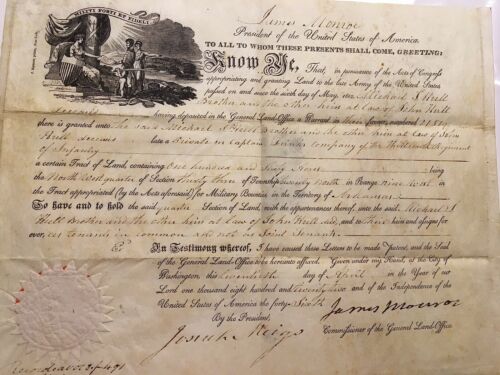 MILITI FORTI ET FIDELI
James Monroe
President of the United States of America.
TO ALL TO WHOM THESE PRESENTS SHALL COME, GREETING:
Know Ye, That, in pursuance of the Acts of Congress
appropriating and granting Land to the late Army of the United States
passed on and since the sixth day of May, 1812, Michael S
Brother and the other heirs at law of John
deceased having deposited in the General Land-Office a Warrant in their favour, numbered
there is granted unto the said Michael S Brother and the other heirs at law of John
late a Private in Captain Company of the Thirteenth regiment
of Infantry
a certain Tract of Land, containing One hundred and Sixty Acres being
the North West quarter of Section Thirty three of Township twenty North in Range nine West in
the Tract appropriated (by the Acts aforesaid) for Military Bounties in the Territory of Arkansas
To have and to hold the said quarter Section of Land, with the appurtenances thereof, unto the said Michael S
Brother and the other heirs at law of John and to their heirs and assigns for
ever, as tenants in common and not as Joint Tenants
In Testimony whereof, I have caused these Letters to be made Patent, and the Seal
of the General Land-Office to be hereunto affixed. Given under my Hand, at the City of
Washington this twentieth day of April in the Year of our
Lord one thousand eight hundred and twenty two and of the Independence of the
United States of America the forty Sixth
By the President, James Monroe
Josiah Meigs Commissioner of the General Land-Office